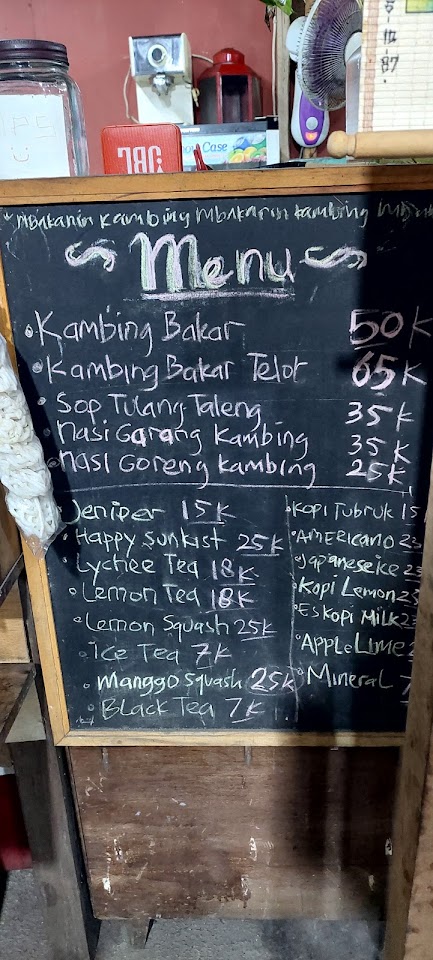 JBL
Case
* Mbakarin Kambing Mbakarin Kambing
Menu
Kambing Bakar 50K
Kambing Bakar Telot 65K
Sop Tulang Taleng 35K
Nasi Gorang Kambing 35K
Nasi Goreng Kambing 25K
Jeniper 15K
Happy Sunkist 25K
Lychee Tea 18K
Lemon Tea 18K
Lemon Squash 25K
Ice Tea 7K
Manggo Squash 25K
Black Tea 7K
Kopi Tubruk 15
Americano
Japanese ice
Kopi Lemon
Es Kopi Milk
Apple Lime
Mineral